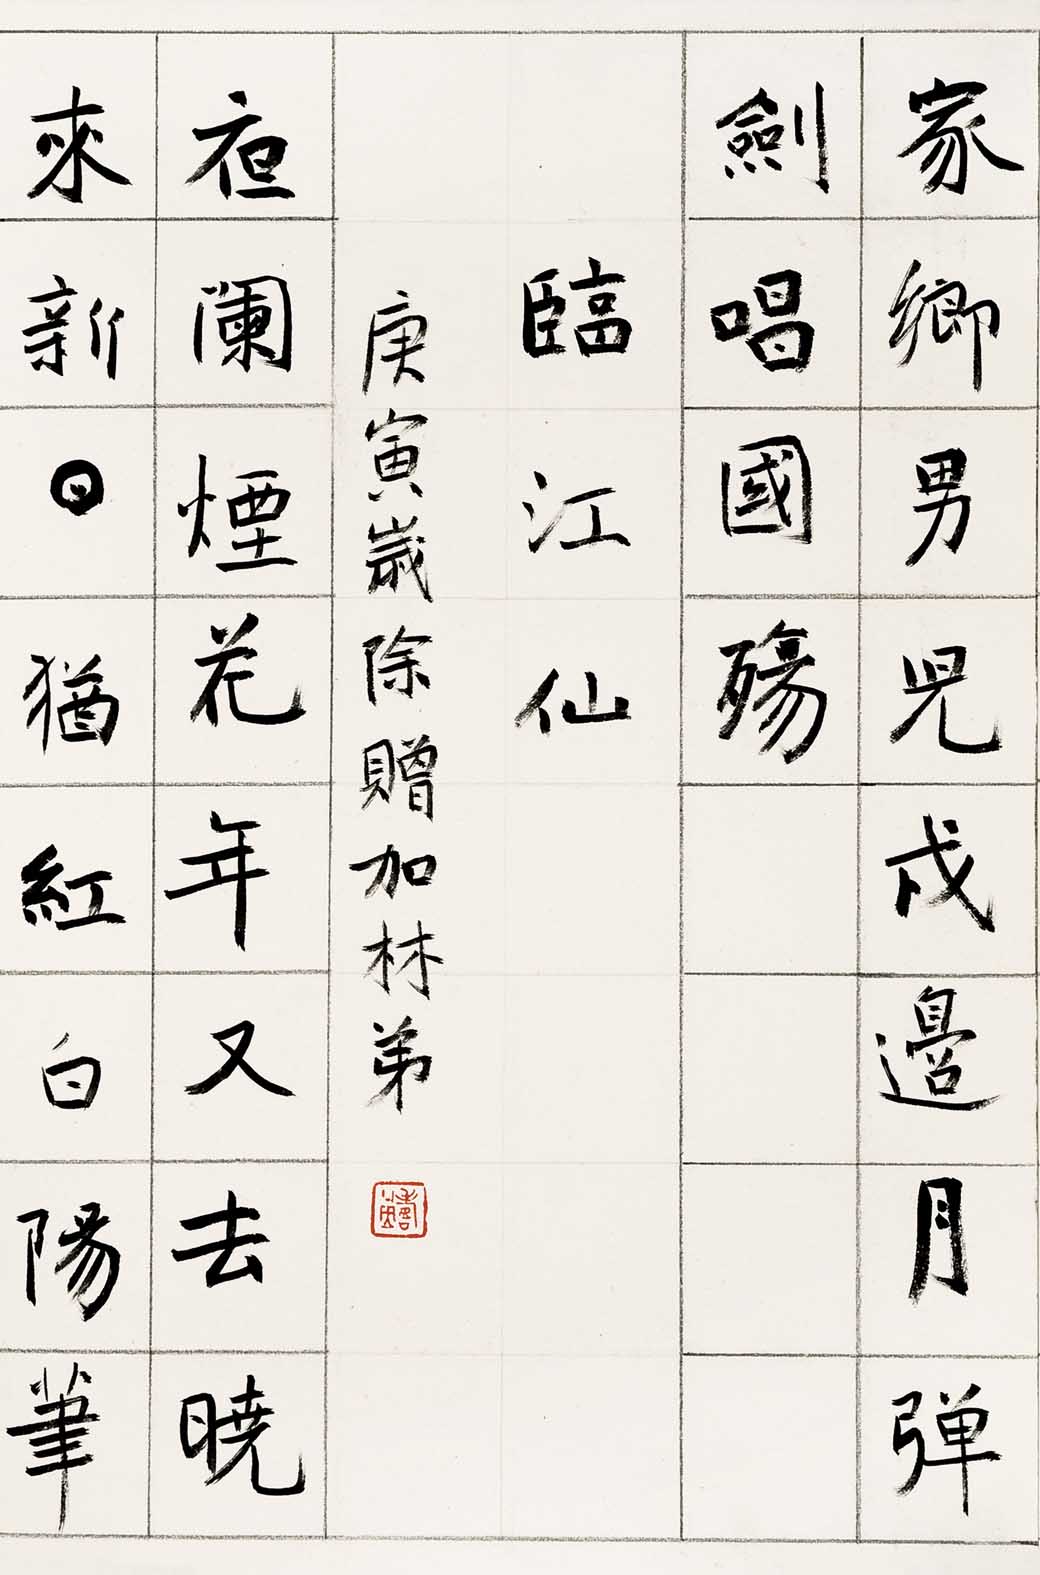 家鄉男児戍邊月弹
劍唱國殤
臨江仙
庚寅歲除贈加林弟
夜阑煙花年又去暁
來新日猶紅白陽筆